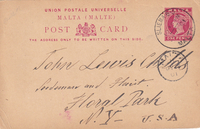 UNION POSTALE UNIVERSELLE
MALTA (MALTE)
POST CARD
THE ADDRESS ONLY TO BE WRITTEN ON THIS SIDE.
John Lewis Childs
Seedsman and Florist
Floral Park
N.Y. U.S.A